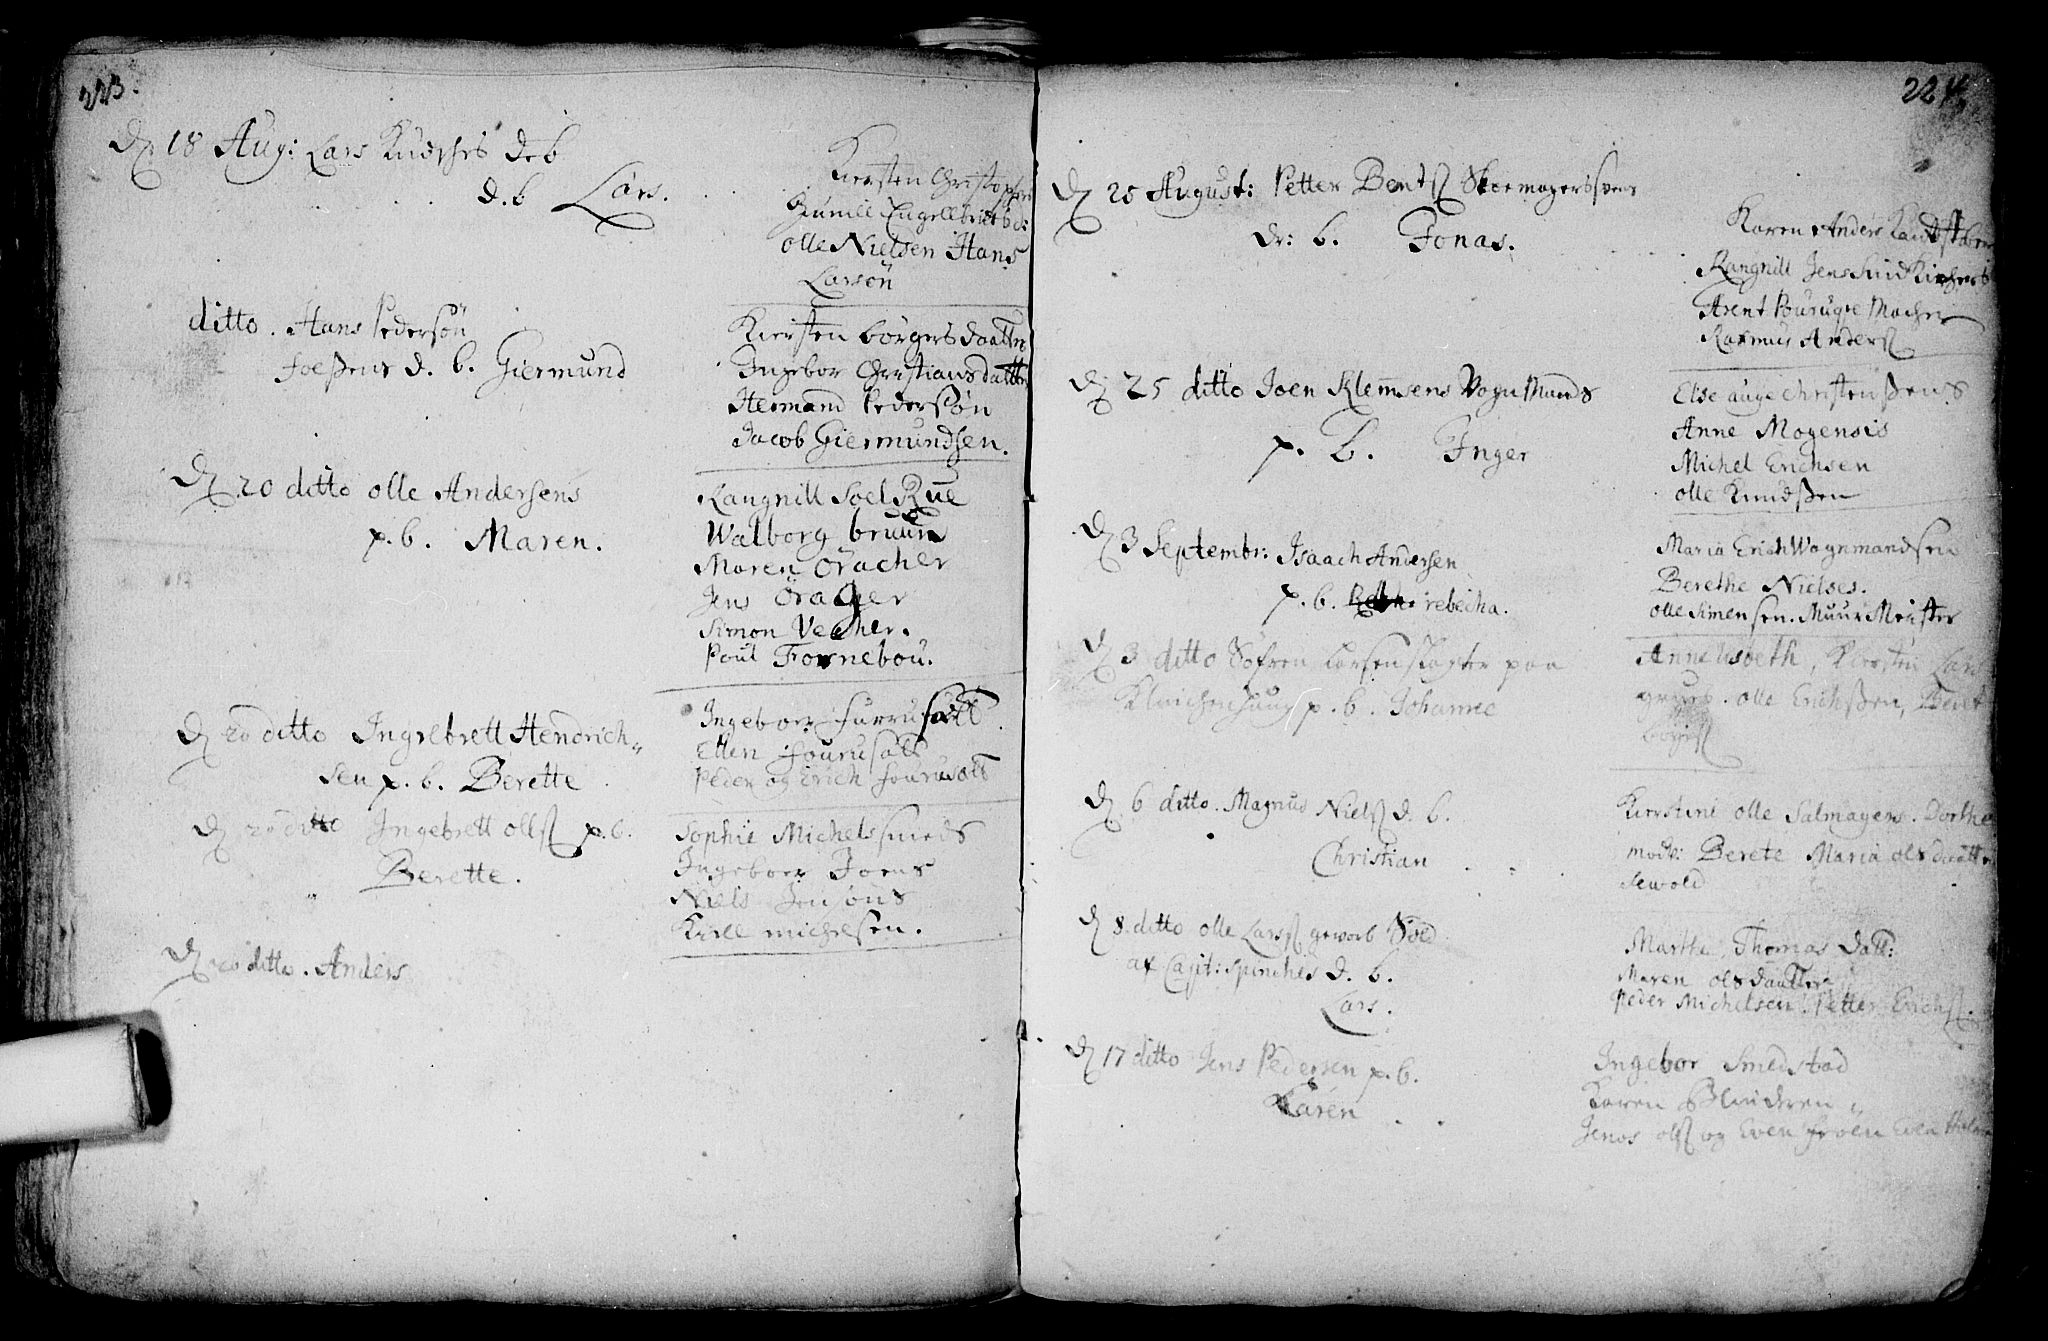 223.
D 18 Aug: Lars Knudsens deb
d. b Lars.
Kiersten Christophers
Gunill Engellbret
olle Nielsen Hans
Larsön
ditto. Hans Pedersön
d. b. Giermund
Kiersten börgers daatter
Ingebor Christians datter
Hermand Pedersön
Jacob Giermundsen.
D 20 ditto olle Andersens
p. b. Maren.
Rangnill Soel Rue
Walborg bruun
Maren Öracher
Jens Örager
Simon Vecher.
Poul Fornebou.
D 20 ditto Ingrebrett Hendrich
sen p. b. Berette
Ingeboer furrusatt
Ellen fourusatt
Peder og Erich fourusatt
D 20 ditto Ingebrett ols p. b.
Berette.
Sophie Michels smeds
Ingeboer Joens
Niels Jensöns
Kield michelsen.
D 20 ditto. Anders
224
D 25 August: Petter Bents Skoemagersvens
dr: b. Jonas.
Karen Anders
Rangnill Jens
Arent Pouruqve Macher
Rasmus Anders
D 25 ditto Joen Klemsens Vognmands
p. b. Inger
Else auge Christensens
Anne Mogensis
Michel Erichsen
olle Knudsen
D 3 Septembr: Isaach Andersen
p. b. rebecha.
Maria Erich Wognmandsen
Berethe Nielses.
olle Simensen. Muur Mester
D 3 ditto Söfren Larsen slagter paa
p. b. Johanne
Anne lisbeth, Kiersten Lars
olle Erichsen, Bent
D 6 ditto. Magnus Niels d. b.
Christian
Kirstine olle Salmagers. Dorthe
mods: Berete Maria olsdaatter
sewold
D 8 ditto olle Lars geworb Sold
af Capit: Spinches d. b.
Lars.
Marthe Thomas Datt:
Maren olsdaatter
Peder Michelsen. Petter Erichs.
D 17 ditto Jens Pedersen p. b.
Karen
Ingebor Smedstad
Karen Blinderen
Jenos ols og Even